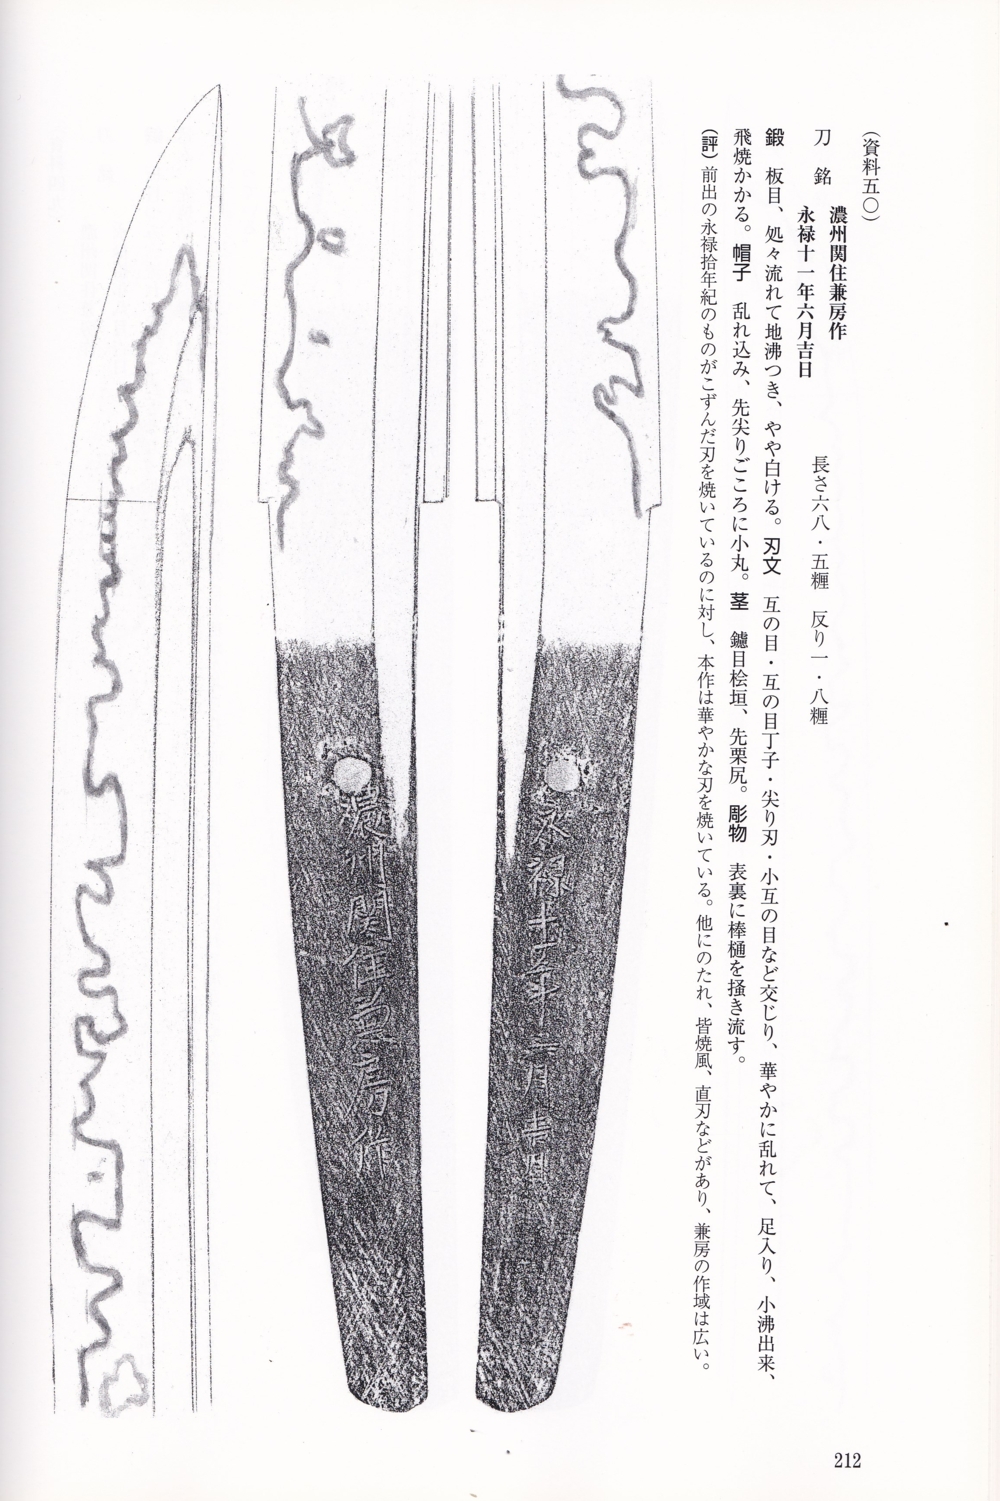 (資料五〇)
刀 銘 濃州関住兼房作
永禄十一年六月吉日
長さ六八・五糎 反り一・八糎
鍛 板目、処々流れて地沸つき、やや白ける。刃文 互の目・互の目丁子・尖り刃・小互の目など交じり、華やかに乱れて、足入り、小沸出来、
飛焼かかる。帽子 乱れ込み、先尖りごころに小丸。茎 鑢目桧垣、先栗尻。彫物 表裏に棒樋を掻き流す。
(評)前出の永禄拾年紀のものがこずんだ刃を焼いているのに対し、本作は華やかな刃を焼いている。他にのたれ、皆焼風、直刃などがあり、兼房の作域は広い。
永禄十一年六月吉日
濃州関住兼房作
212